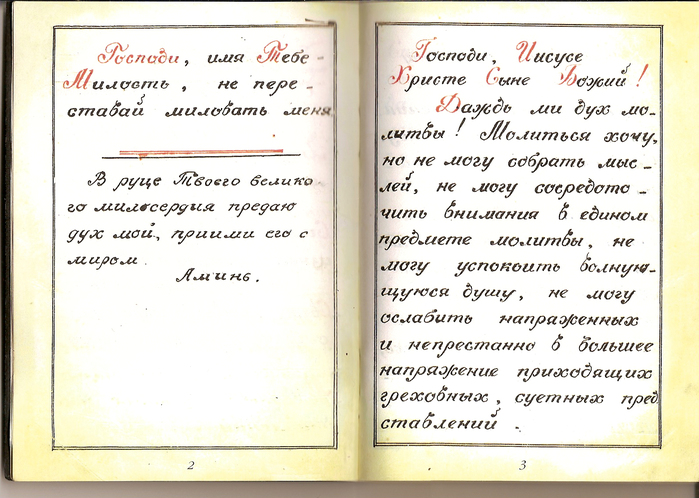 Господи, имя Тебе -
Милость, не пере -
ставай миловать меня
В руце Твоего велико
го милосердия предаю
дух мой, приими его с
миром.
Аминь.
2
Господи, Иисусе
Христе Сыне Божий!
Даждь ми дух мо-
литвы! Молиться хочу,
но не могу собрать мыс -
лей, не могу сосредото -
чить внимания в едином
предмете молитвы, не
могу успокоить волную-
щуюся душу, не могу
ослабить напряженных
и непрестанно в большее
напряжение приходящих
греховных, суетных пред
ставлений .
3